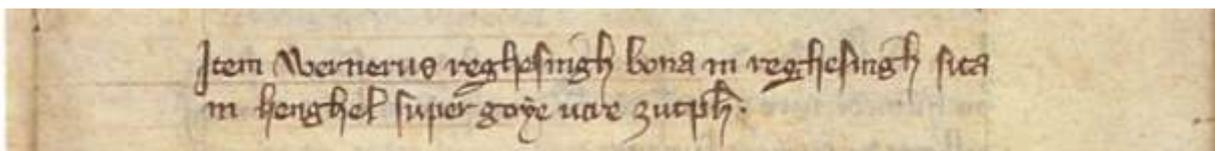 Item Wernerus reghesingh bona in reghesingh sita
in henghel super goye iure zutph.